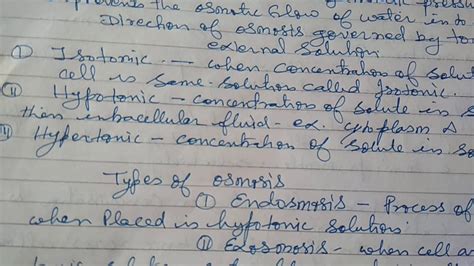 prevents the osmotic flow of water in to
Direction of osmosis governed by to
external solution
① Isotonic — when concentration of solut
cell is same. solution called Isotonic.
② Hypotonic — concentration of solute is s
than intracellular fluid - ex. cytoplasm
③ Hypertonic — concentration of solute is so
Types of osmosis
① Endosmosis — Process of
when Placed in hypotonic solution.
② Exosmosis - when cell a